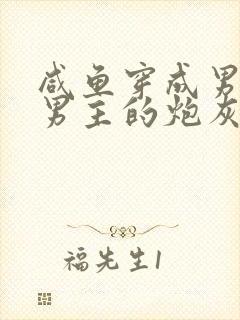 咸鱼穿成男
男主的炮灰
福先生1